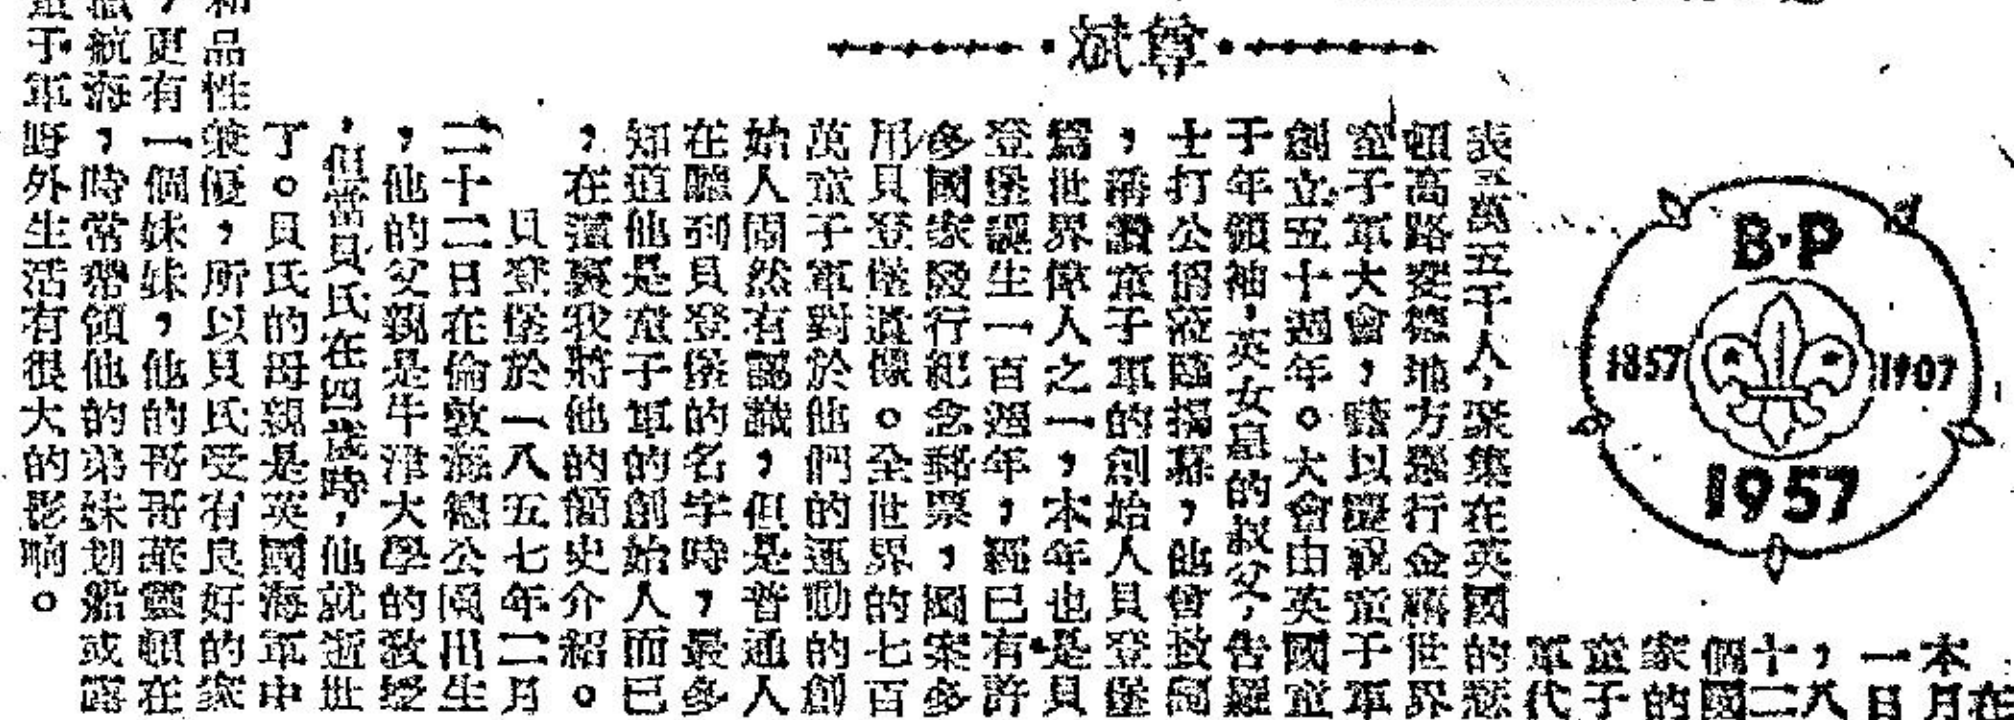 斌尊
B·P
1857
1907
1957
本
一月在
，八日
十二
個國
家的
童子
軍代
表三萬五千人，聚集在英國的薩
頓高路密德地方舉行金禧世界
童子軍大會，藉以慶祝童子軍
創立五十週年。大會由英國童
子年領袖，英女皇的叔父，告羅
士打公爵蒞臨揭幕，他曾致詞
，稱讚童子軍的創始人貝登堡
爲世界偉人之一，本年也是貝
登堡誕生一百週年，經已有許
多國家發行紀念郵票，圖案多
用貝登堡遺像。全世界的七百
萬童子軍對於他們的運動的創
始人固然有認識，但是普通人
在聽到貝登堡的名字時，最多
知道他是童子軍的創始人而已
，在這裏我將他的簡史介紹。
貝登堡於一八五七年二月
二十二日在倫敦海德公園出生
，他的父親是牛津大學的教授
，但當貝氏在四歲時，他就逝世
了。貝氏的母親是英國海軍中
和品性兼優，所以貝氏受有良好的家
，更有一個妹妹，他的哥哥華靈頓在
航海，時常帶領他的弟妹划船或露
童子軍野外生活有很大的影响。